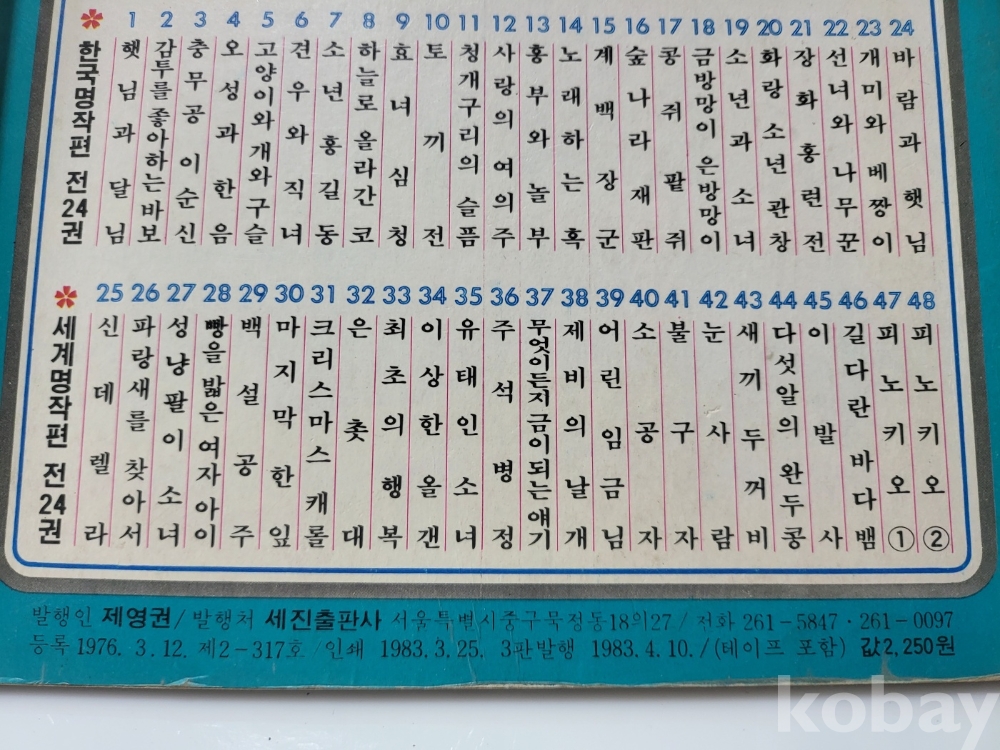 한국명작편 전24권
1 햇님과 달님
2 감투를 좋아하는 바보
3 충무공 이순신
4 오성과 한음
5 고양이와 개와 구슬
6 견우와 직녀
7 소년 홍길동
8 하늘로 올라간 코
9 효녀 심청
10 토끼전
11 청개구리의 슬픔
12 사랑의 여의주
13 흥부와 놀부
14 노래하는 혹
15 계백장군
16 숲나라 재판
17 콩쥐 팥쥐
18 금방망이 은방망이
19 소년과 소녀
20 화랑 소년 관창
21 장화홍련전
22 선녀와 나무꾼
23 개미와 베짱이
24 바람과 햇님
세계명작편 전24권
25 신데렐라
26 파랑새를 찾아서
27 성냥팔이 소녀
28 빵을 밟은 여자 아이
29 백설공주
30 마지막 한 잎
31 크리스마스 캐롤
32 은촛대
33 최초의 행복
34 이상한 올갠
35 유태인 소녀
36 주석 병정
37 무엇이든지 금이 되는 얘기
38 제비의 날개
39 어린 임금님
40 소공자
41 불구자
42 눈사람
43 새끼 두꺼비
44 다섯 알의 완두콩
45 이발사
46 길다란 바다뱀
47 피노키오 ①
48 피노키오 ②
발행인 제영권/발행처 세진출판사 서울특별시중구묵정동18의27/전화 261-5847·261-0097
등록1976. 3. 12. 제2-317호/인쇄 1983. 3. 25. 3판발행 1983. 4. 10./(테이프 포함) 값2,250원
kobay